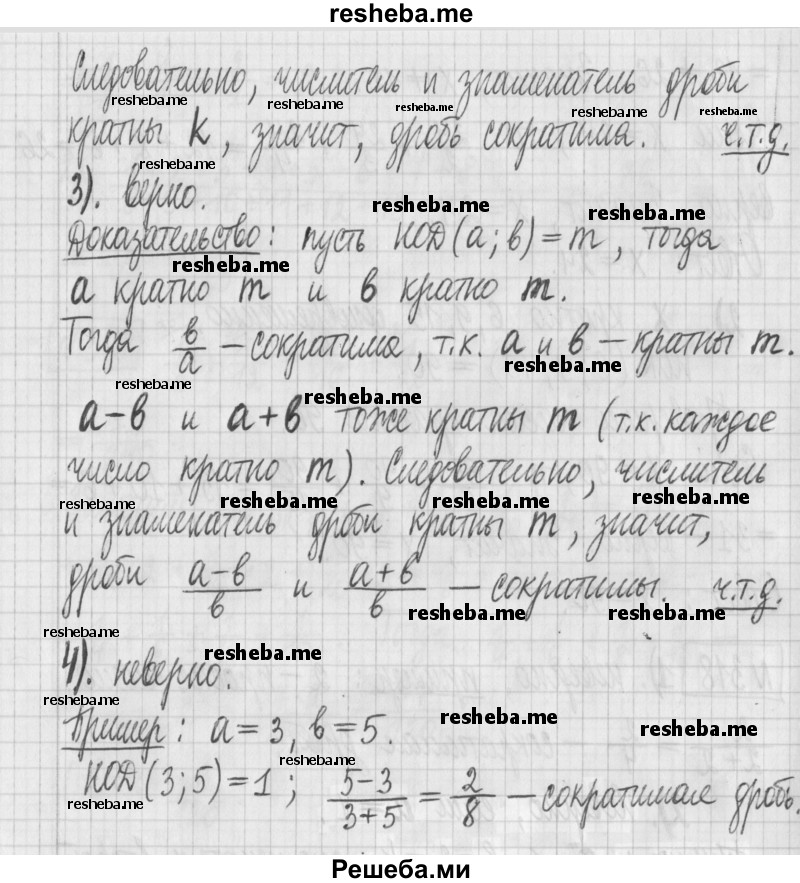 resheba.me
Следовательно, числитель и знаменатель дроби
resheba.me resheba.me resheba.me resheba.me resheba.me
кратны k, значит, дробь сократима. ч.т.д.
resheba.me
3). верно. resheba.me resheba.me
Доказательство: пусть НОД(а; в) = m, тогда
resheba.me
а кратно m и в кратно m.
Тогда в/а – сократима, т.к. а и в – кратны m.
resheba.me
resheba.me resheba.me
а–в и а+в тоже кратны m (т.к. каждое
число кратно m). Следовательно, числитель
resheba.me resheba.me resheba.me resheba.me
и знаменатель дроби кратны m, значит,
дроби а–в/в и а+в/в – сократимы. ч.т.д.
resheba.me resheba.me
resheba.me
4). неверно. resheba.me
resheba.me
Пример: а = 3, в = 5. resheba.me resheba.me
resheba.me
НОД(3; 5) = 1; 5–3/3+5 = 2/8 – сократимая дробь.
resheba.me
Решеба.ми